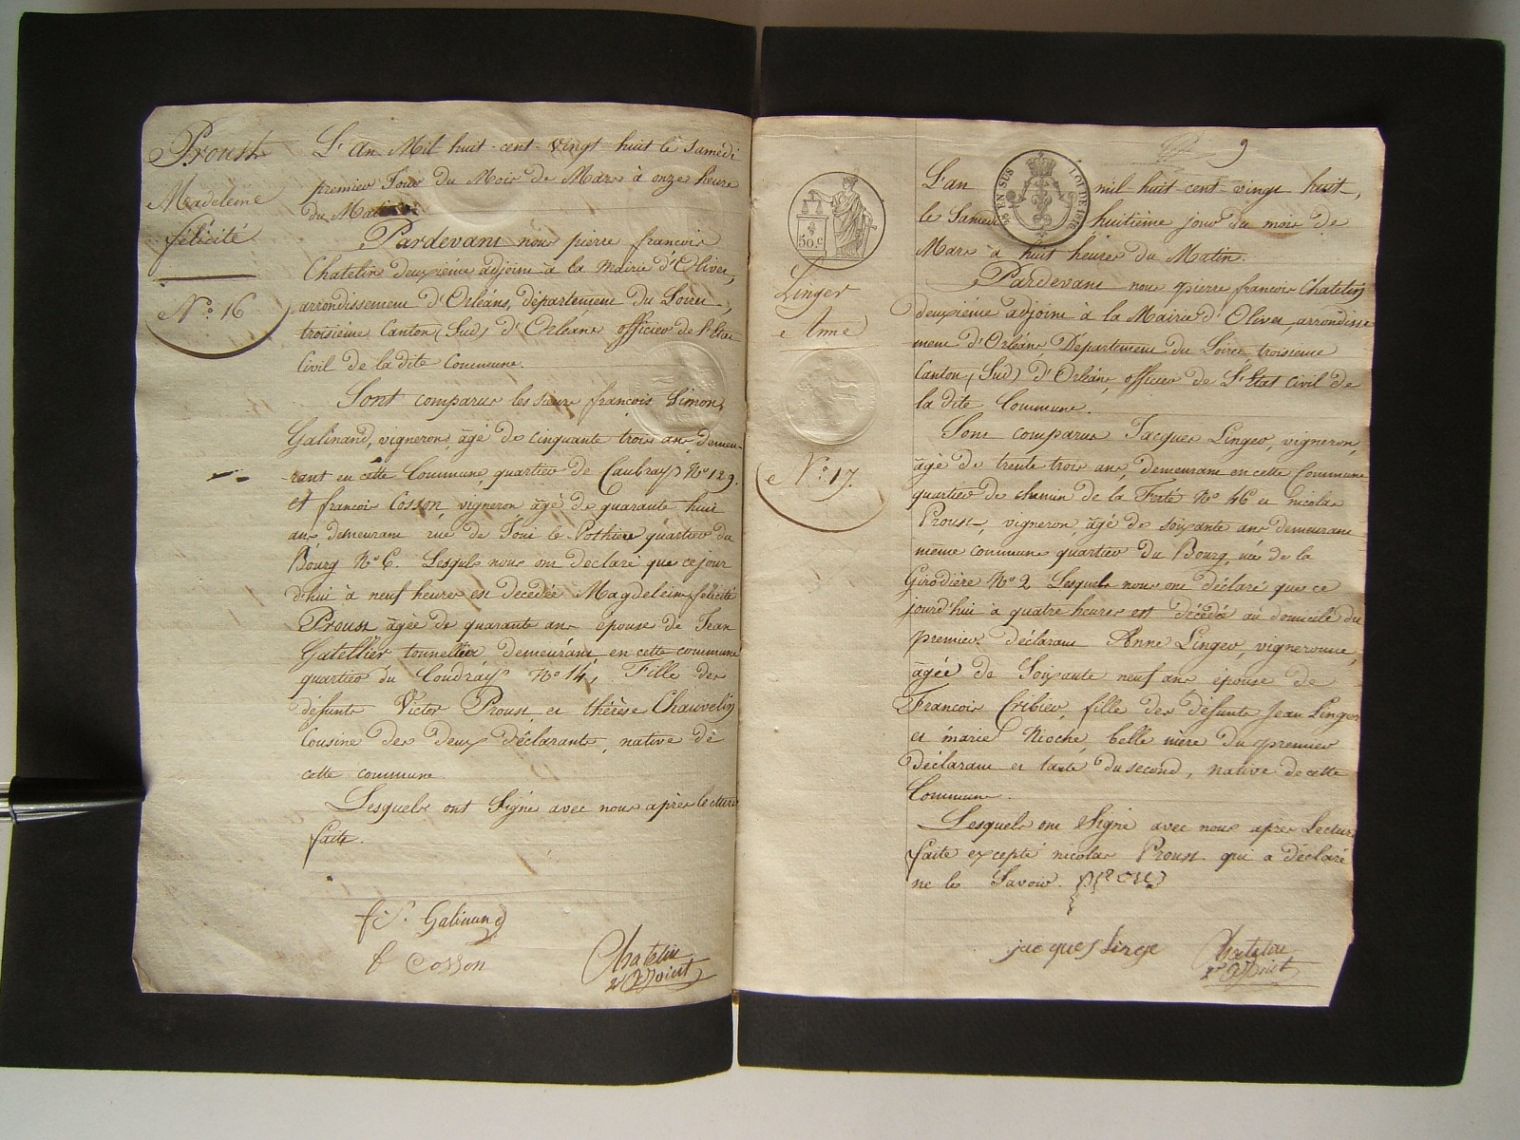 Proust
Madeleine
félicité
N.° 16
L'an Mil huit-cent-vingt huit le Samedi
premier Jour du Mois de Mars à onze heure
du Matin.
Pardevant nous pierre francois
Chatelin deuxième adjoint à la Mairie d'Olivet,
arrondissement d'Orléans, département du Loiret,
troisième Canton (Sud) d'Orléans officier de l'Etat
Civil de la dite Commune.
Sont comparus les sieurs françois Simon
Galinand, vigneron, âgé de cinquante trois ans, demeu-
rant en cette Commune, quartier de Caubray N° 129.
et francois Cosson, vigneron âgé de quarante huit
ans demeurant rue de Joui le Pothier quartier du
Bourg N° 6. Lesquels nous ont déclaré que ce jour
d'hui à neuf heures est décédée Magdeleine félicité
Proust âgée de quarante ans épouse de Jean
Gatellier tonnellier demeurant en cette commune
quartier du Coudray N° 14, Fille des
defunts Victor Proust et thérèse Chauvelin
Cousine des deux déclarants, native de
cette commune.
Lesquels ont Signé avec nous après lecture
faite.
Galinand
f Cosson
Chatelin
2e Adjoint
9
50.c
EN SUS
LOI DE
Linger
Anne
N.° 17.
L'an mil huit-cent-vingt huit,
le Samedi huitième jour du mois de
Mars à huit heures du Matin.
Pardevant nous pierre francois Chatelin
deuxième adjoint à la Mairie d'Olivet arrondisse
ment d'Orléans, Département du Loiret, troisieme
Canton, (Sud) d'Orléans, officier de L'Etat Civil de
la dite Commune.
Sont comparus Jacques Linger, vigneron,
âgé de trente trois ans, demeurant en cette Commune
quartier du chemin de la Ferté N° 46 et nicolas
Proust, vigneron âgé de soixante ans demeurant
même commune quartier du Bourg, rue de la
Girodière N° 2 Lesquels nous ont déclaré que ce
jourd'hui à quatre heures est décédée au domicile du
premier déclarant Anne Linger, vigneronne,
âgée de Soixante neuf ans épouse de
Francois Cribier, fille des defunts Jean Linger
et marie Rioche belle mère du premier
déclarant et tante du second, native de cette
Commune.
Lesquels ont Signé avec nous après Lecture
faite excepté nicolas Proust qui a déclaré
ne le Savoir.
jacques Linge
Chatelin
2e Adjoint